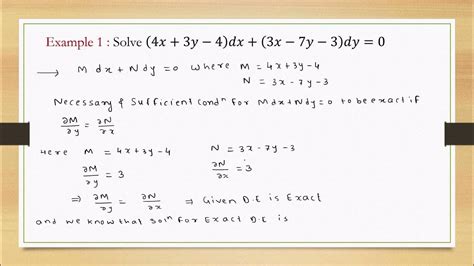 Example 1 : Solve (4x + 3y − 4)dx + (3x − 7y − 3)dy = 0
⟶ M dx + N dy = 0 where M = 4x+3y-4
N = 3x-7y-3
Necessary & Sufficient condⁿ for Mdx+Ndy=0 to be exact if
∂M/∂y = ∂N/∂x
Here M = 4x+3y-4 N = 3x-7y-3
∂M/∂y = 3 ∂N/∂x = 3
⇒ ∂M/∂y = ∂N/∂x ⇒ Given D.E is Exact
and we know that solⁿ for Exact D.E is